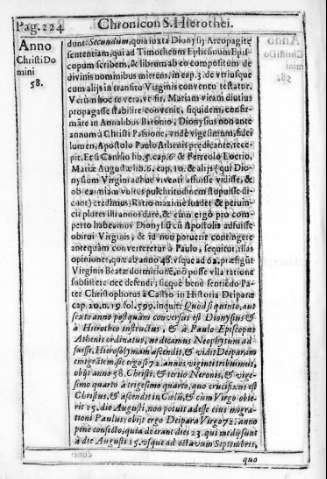 Pag. 224
Chronicon S. Hierothei.
Anno
Christi Do
mini
58.
dunt. Secundum, quia iuxta Dionysij Areopagitę
sententiam, qui ad Timotheum Ephesinum Epis
copum scribens, & librum ab eo compositum de
divinis nominibus mittens, in cap. 3. de vtriusque
cum alijs in transito Virginis convento testatur.
Verùm hoc te vera, et si, Mariam vitam diutius
propagasse stabiliter convenit, siquidem, confir-
mâte in Annalibus Baronio, Dionysius non ante
annum à Christi Passione, fidei
lumen, Apostolo Paulo Athenis prędicante, rece-
pit. Et si Canisio lib. 5. cap. & Ferreolo Locrio,
Mariæ Augustæ lib. 6. cap. 10. & alijs (qui Dio-
nysium Virginê adhuc viventê vidisse, &
ob eximiam vultus pulchritudinem
cant) credimus. Retro maximè suadet & pervin-
cit plures illi annos darè, & cum ergo pro com-
perto habeamus Dionysiû cû Apostolis adfuisse
obitui Virginis, & id non potuerit contingere
antequàm converteretur à Paulo, sequitur, illas
opiniones, quæ ab anno 48. vsque ad 62. præfigût
Virginis Beatæ dormitionê, nô posse vlla ratione
subsistere nec defendi, sicque benè sentiêdo Pa-
ter Christophorus à Castro in Historia Deipara
cap. 20. n. 19. fol. 599. inquit: Quòd si quinto, aut
sexto anno postquàm conversus est Dionysius &
à Hierotheo instructus, & à Paulo Episcopus
Athenis ordinatus, ne dicamus Neophytum ad-
fuisse, Hierosolymam ascendit, & vidit Deiparam
emigrâtem, sic ergo 72. annes viginti tribus minis,
obijt anno 58. Christi, & tertio Neronis, & vige-
simo quarto à trigesimo quarto, quo crucifixus est
Christus, & ascendit in Cœlû, & cum Virgo obie-
rit 15. die Augusti, non potuit adesse eius migra-
tioni Paulus; obijt ergo Deipara Virgo 72. anno
pene consesto, quia deerant dies 23. qui
à die Augusti 15. vsque ad octavum Septembris,
quo